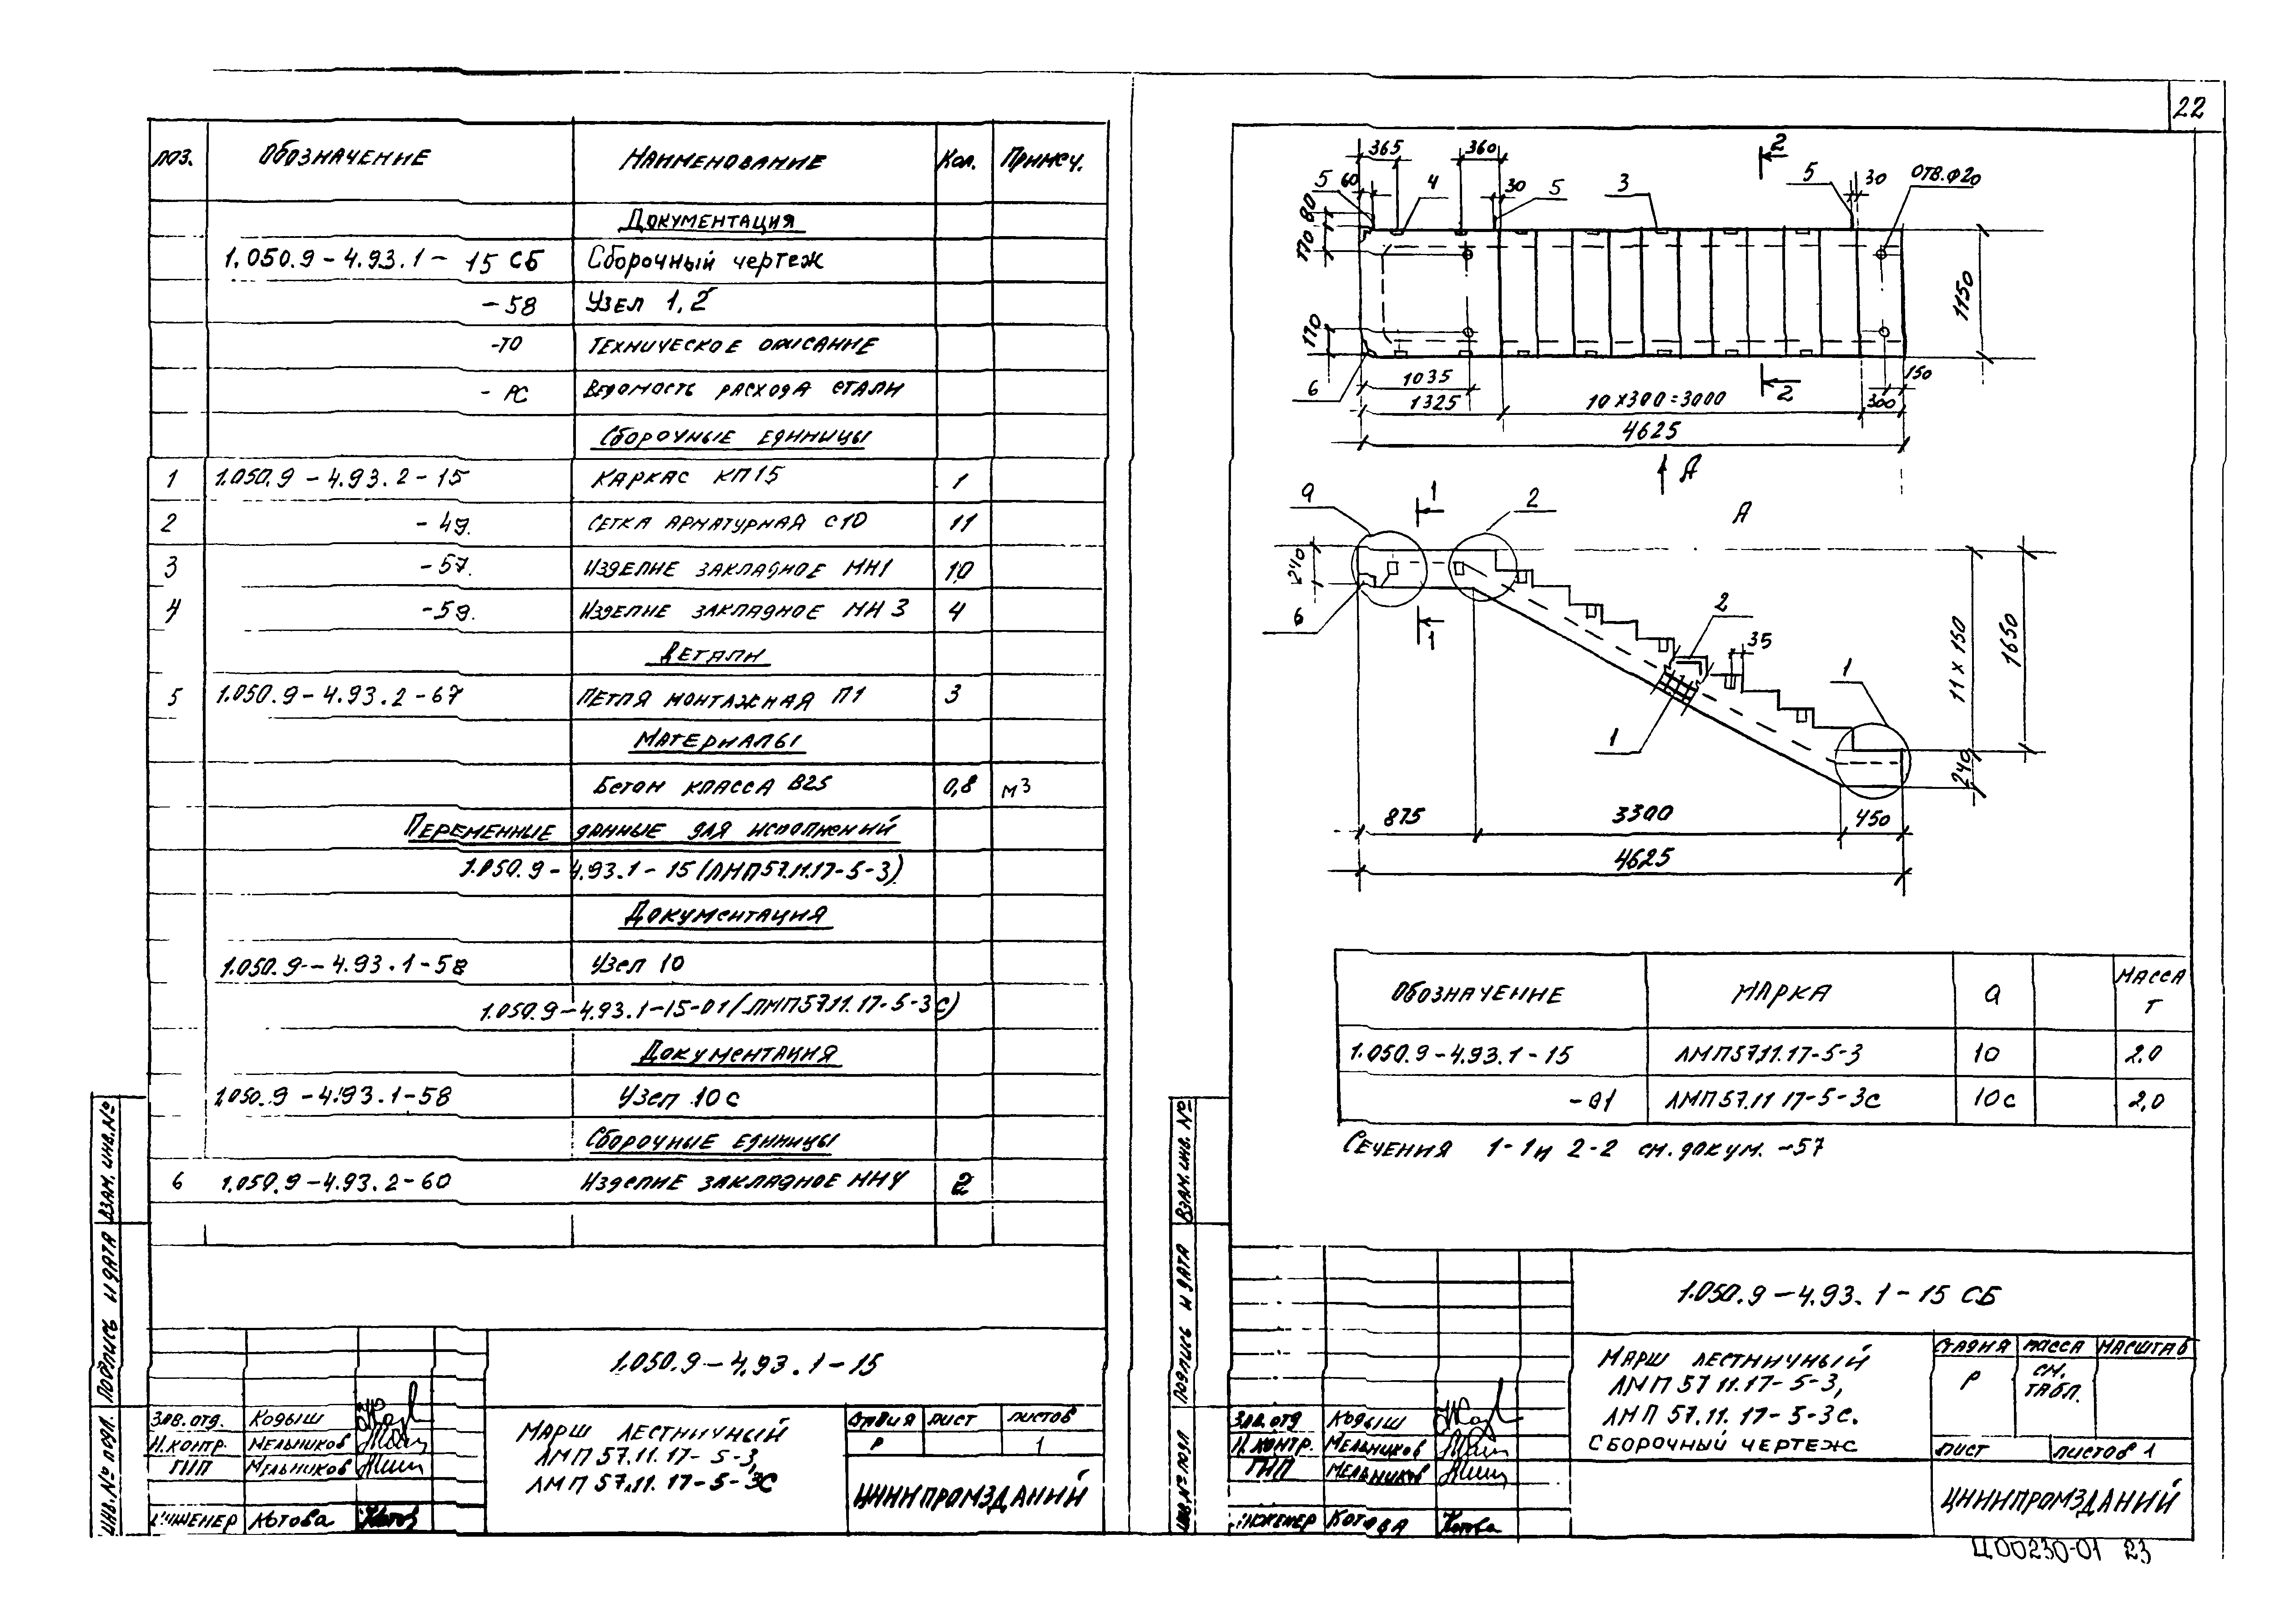 22
Поз. Обозначение Наименование Кол. Примеч.
Документация
1.050.9-4.93.1-15 СБ Сборочный чертеж
-58 Узел 1,2
-ТО Техническое описание
-РС Ведомость расхода стали
Сборочные единицы
1 1.050.9-4.93.2-15 Каркас КП15 1
2 -49. Сетка арматурная С10 11
3 -57. Изделие закладное МН1 10
4 -59. Изделие закладное МН3 4
Детали
5 1.050.9-4.93.2-67 Петля монтажная П1 3
Материалы
Бетон класса В25 0,8 м3
Переменные данные для исполнений
1.050.9-4.93.1-15 (ЛМП57.11.17-5-3)
Документация
1.050.9-4.93.1-58 Узел 10
1.050.9-4.93.1-15-01 (ЛМП57.11.17-5-3С)
Документация
1.050.9-4.93.1-58 Узел 10с
Сборочные единицы
6 1.050.9-4.93.2-60 Изделие закладное МН4 2
1.050.9-4.93.1-15
Марш лестничный
ЛМП 57.11.17-5-3,
ЛМП 57.11.17-5-3С
Стадия Лист Листов
Р 1
ЦНИИПРОМЗДАНИЙ
Зав.отд. Кодыш
Н.контр. Мельников
ГИП Мельников
Инженер Котова
Инв.№ подл. Подпись и дата Взам.инв.№
365 360 2
5 60 4 30 5 3 5 30 отв.ф20
80
170
170
1150
6 1035 2 150
1325 10х300=3000 300
4625
А
а 1 2 А
240
6 1 2 35 1
1
11 х 150
1650
240
875 3300 450
4625
Обозначение Марка а Масса т
1.050.9-4.93.1-15 ЛМП57.11.17-5-3 10 2.0
-01 ЛМП57.11 17-5-3С 10с 2,0
Сечения 1-1 и 2-2 см. докум. -57
1.050.9-4.93.1-15 СБ
Марш лестничный
ЛМП 57 11.17-5-3,
ЛМП 57.11.17-5-3С.
Сборочный чертеж
Стадия Масса Масштаб
Р см. табл.
Лист Листов 1
ЦНИИПРОМЗДАНИЙ
Зав.отд Кодыш
Н.контр. Мельников
ГИП Мельников
Инженер Котова
Котова
Инв.№ подл Подпись и дата Взам.инв.№
Ц00230-01 23